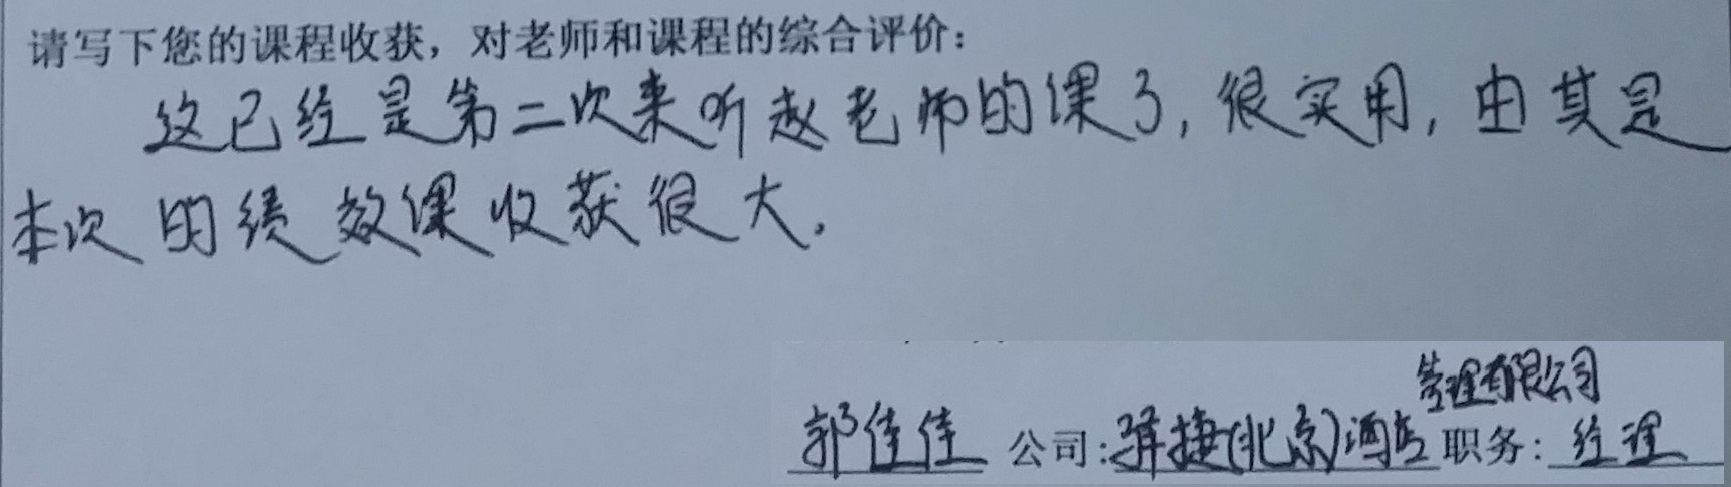 请写下您的课程收获，对老师和课程的综合评价：
这已经是第二次来听赵老师的课了，很实用，由其是
本次的绩效课收获很大。
管理有限公司
郭佳佳 公司：驿捷(北京)酒店 职务：经理